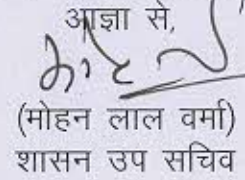 आज्ञा से,
(मोहन लाल वर्मा)
शासन उप सचिव